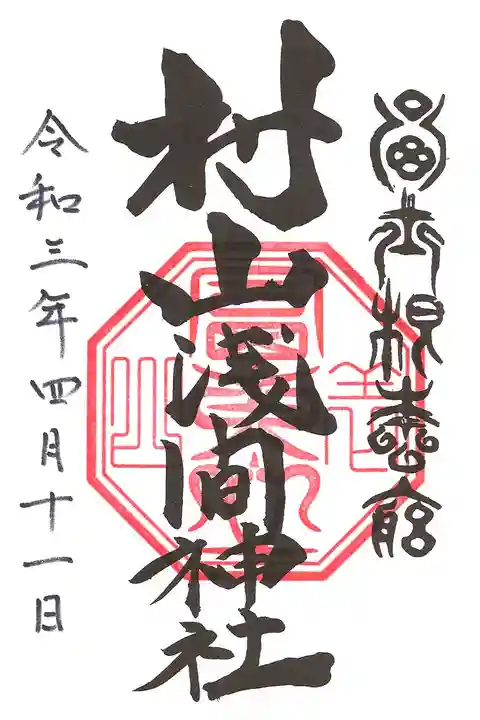 冨士根本宮
村山浅間神社
令和三年四月十一日